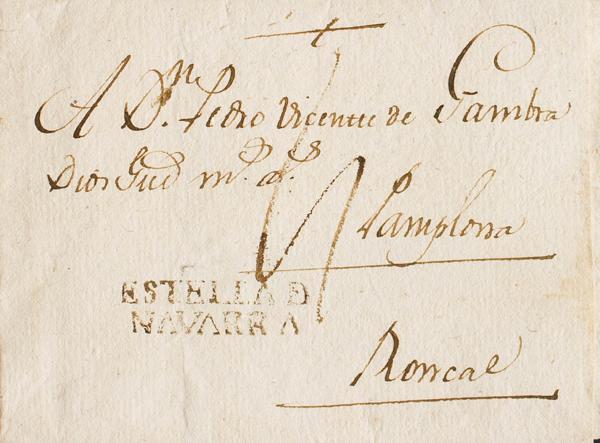 A D.n Pedro Vicente de Gambra
Dios Gud m.s a.s
Pamplona
ESTELLA D
NAVARRA
Roncal